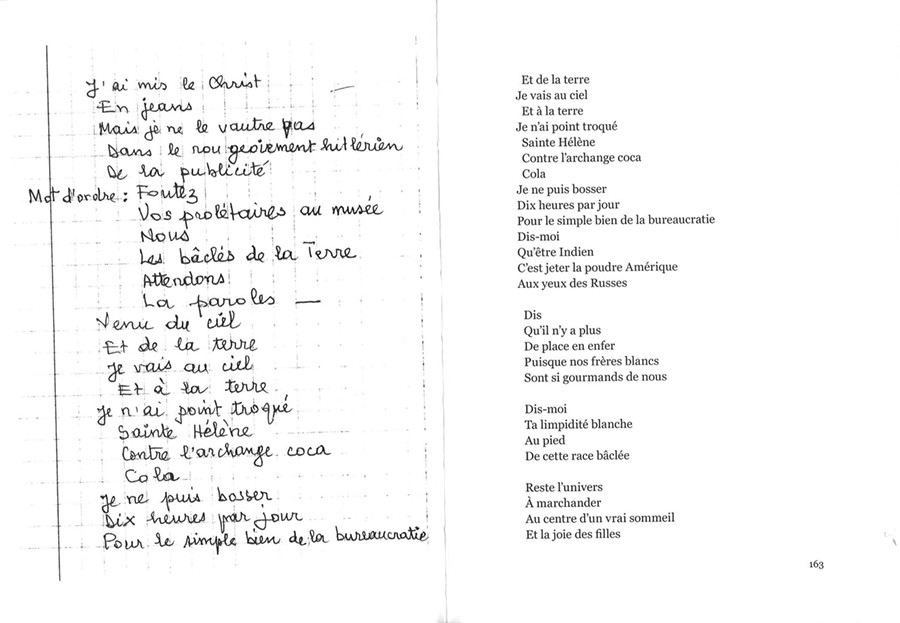 J'ai mis le Christ
En jeans
Mais je ne le vautre pas
Dans le rougeoiement hitlérien
De la publicité
Mot d'ordre : Foutez
Vos prolétaires au musée
Nous
Les bâclés de la Terre
Attendons
La paroles —
Venu du ciel
Et de la terre
Je vais au ciel
Et à la terre
Je n'ai point troqué
Sainte Hélène
Contre l'archange coca
Cola
Je ne puis bosser
Dix heures par jour
Pour le simple bien de la bureaucratie
Et de la terre
Je vais au ciel
Et à la terre
Je n'ai point troqué
Sainte Hélène
Contre l'archange coca
Cola
Je ne puis bosser
Dix heures par jour
Pour le simple bien de la bureaucratie
Dis-moi
Qu'être Indien
C'est jeter la poudre Amérique
Aux yeux des Russes
Dis
Qu'il n'y a plus
De place en enfer
Puisque nos frères blancs
Sont si gourmands de nous
Dis-moi
Ta limpidité blanche
Au pied
De cette race bâclée
Reste l'univers
À marchander
Au centre d'un vrai sommeil
Et la joie des filles
163